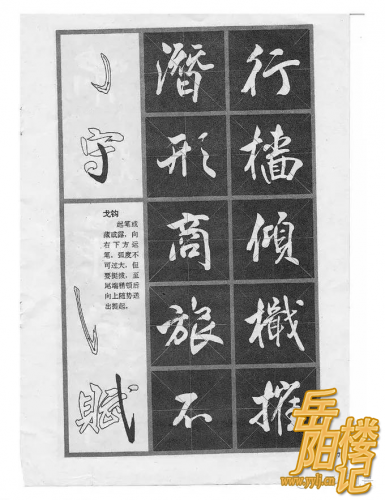 守
戈钩
起笔或
藏或露，向
右下方运
笔，弧度不
可过大，但
要挺拔，至
尾端稍顿后
向上随势送
出提起。
賦
潛形商旅不
行檣傾檝摧
岳阳楼记
www.yylj.cn